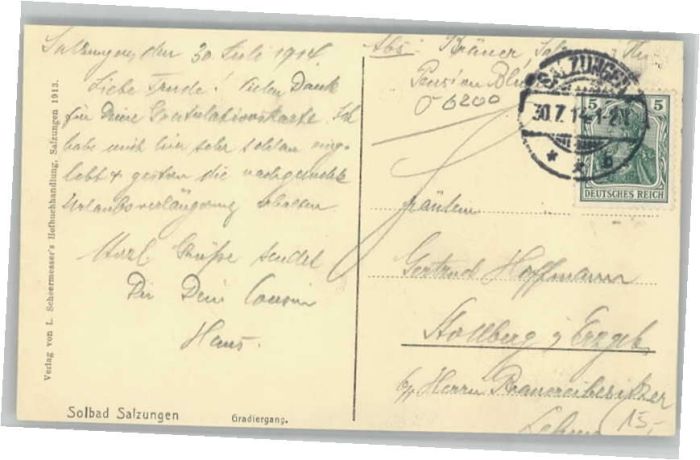 Salzungen, den 30 Juli 1914.
Liebe Trude! Vielen Dank
für Deine Gratulationskarte. Ich
habe mich hier sehr solidan einge-
lebt & gestern die nachgesuchte
Urlaubsverlängerung erhalten
Herzl Grüße sendet
Dir Dein Cousin
Hans.
Verlag von L. Scheermesser's Hofbuchhandlung, Salzungen 1913.
Solbad Salzungen
Gradiergang.
Abs: Krämer
Pension
6200
SALZUNGEN
30.7.14.1-2N
* b
5 5
DEUTSCHES REICH
Fräulein
Gertrud Hoffmann
Stollberg i/Erzgeb
b/ Herrn Brauereibesitzer
15,-